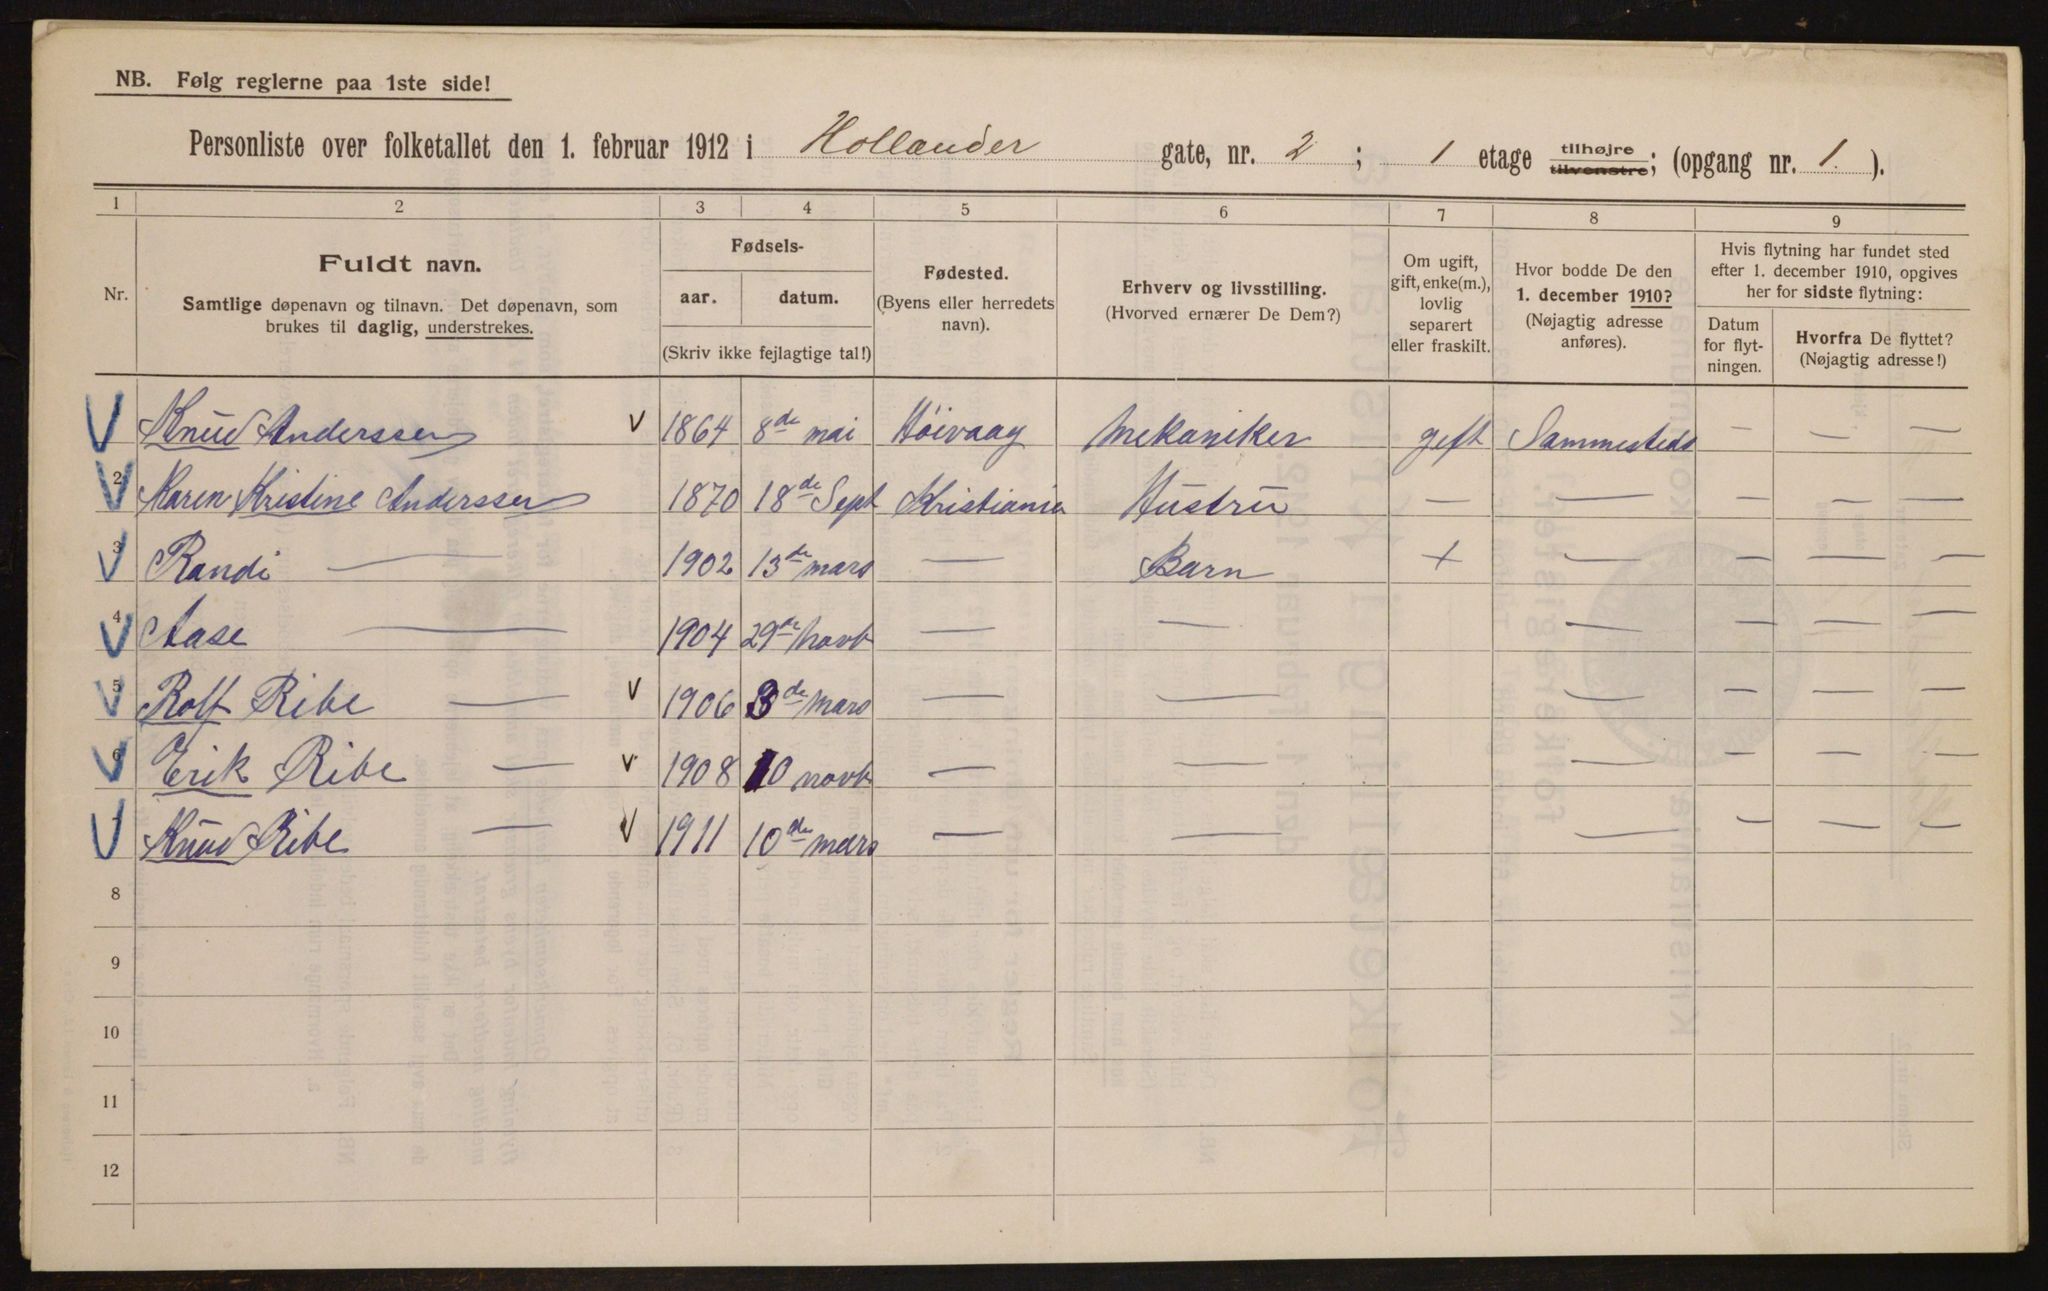 NB. Følg reglerne paa 1ste side!
Personliste over folketallet den 1. februar 1912 i Hollænder gate, nr. 2 ; 1 etage tilhøjre tilvenstre; (opgang nr. 1. ).
1 2 3 4 5 6 7 8 9
Nr.
Fuldt navn.
Samtlige døpenavn og tilnavn. Det døpenavn, som
brukes til daglig, understrekes.
Fødsels-
aar. datum.
(Skriv ikke fejlagtige tal!)
Fødested.
(Byens eller herredets
navn).
Erhverv og livsstilling.
(Hvorved ernærer De Dem?)
Om ugift,
gift, enke(m.),
lovlig
separert
eller fraskilt.
Hvor bodde De den
1. december 1910?
(Nøjagtig adresse
anføres).
Hvis flytning har fundet sted
efter 1. december 1910, opgives
her for sidste flytning:
Datum
for flyt-
ningen.
Hvorfra De flyttet?
(Nøjagtig adresse!)
V Knud Anderssen V 1864 8de mai Höivaag Mekaniker gift Sammesteds — — —
V 2 Karen Kristine Anderssen 1870 18de Sept Kristiania Hustru — — — — —
V 3 Randi — 1902 13de mars — Barn + — — — —
V 4 Aase — 1904 29de Novb — — — — — —
V 5 Rolf Ribe — V 1906 3de Mars — — — — — —
V 6 Erik Ribe — V 1908 10 novb — — — — — —
V 7 Knud Ribe — V 1911 10de mars — — — — — —
8
9
10
11
12